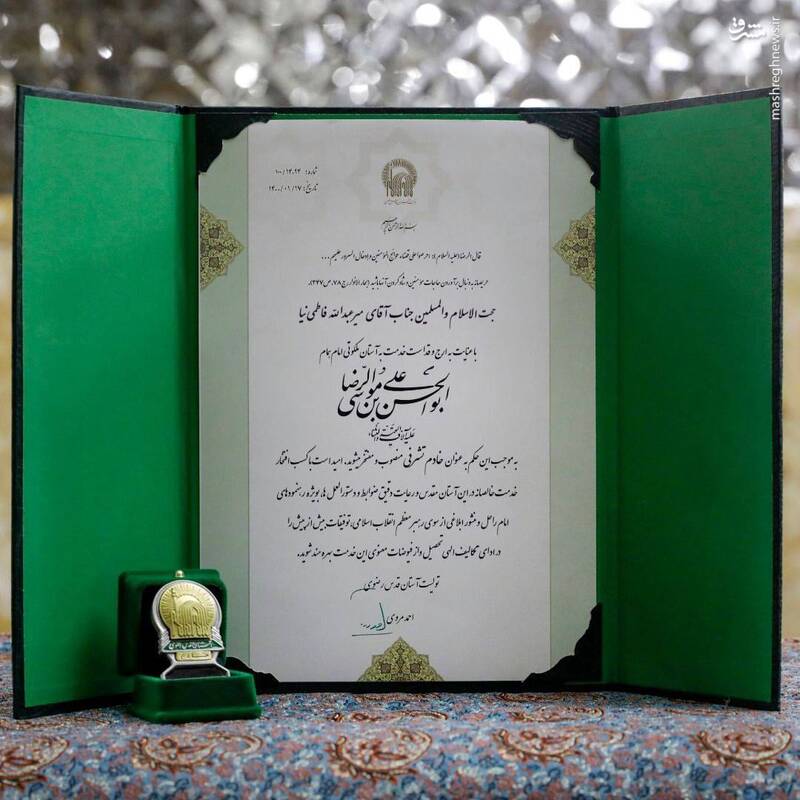 مشرق
mashreghnews.ir
شماره: ۱۰۰/۱۴۰۹۴
تاریخ: ۱۴۰۰/۰۱/۱۷
بسم الله الرحمن الرحیم
قال الرضا (علیه السلام): احرصوا علی قضاء حوائج المؤمنین و ادخال السرور علیهم ...
حریصانه به دنبال برآوردن حاجات مؤمنین و شاد کردن آنها باشید (بحارالانوار، ج ۷۸، ص ۳۴۷).
حجت الاسلام والمسلمین جناب آقای میرعبدالله فاطمی نیا
با عنایت به ارج و قداست خدمت به آستان ملکوتی امام همام
ابوالحسن علی بن موسی الرضا
علیه آلاف التحیة والثناء،
به موجب این حکم به عنوان خادم تشرفی منصوب و مفتخر میشوید، امید است با کسب افتخار
خدمت خالصانه در این آستان مقدس و رعایت دقیق ضوابط و دستورالعمل ها، بویژه رهنمودهای
امام راحل و منشور ابلاغی از سوی رهبر معظم انقلاب اسلامی، توفیقات بیش از پیش را
در ادای تکالیف الهی تحصیل و از فیوضات معنوی این خدمت بهره مند شوید.
تولیت آستان قدس رضوی
احمد مروی
آستان قدس رضوی
خادم